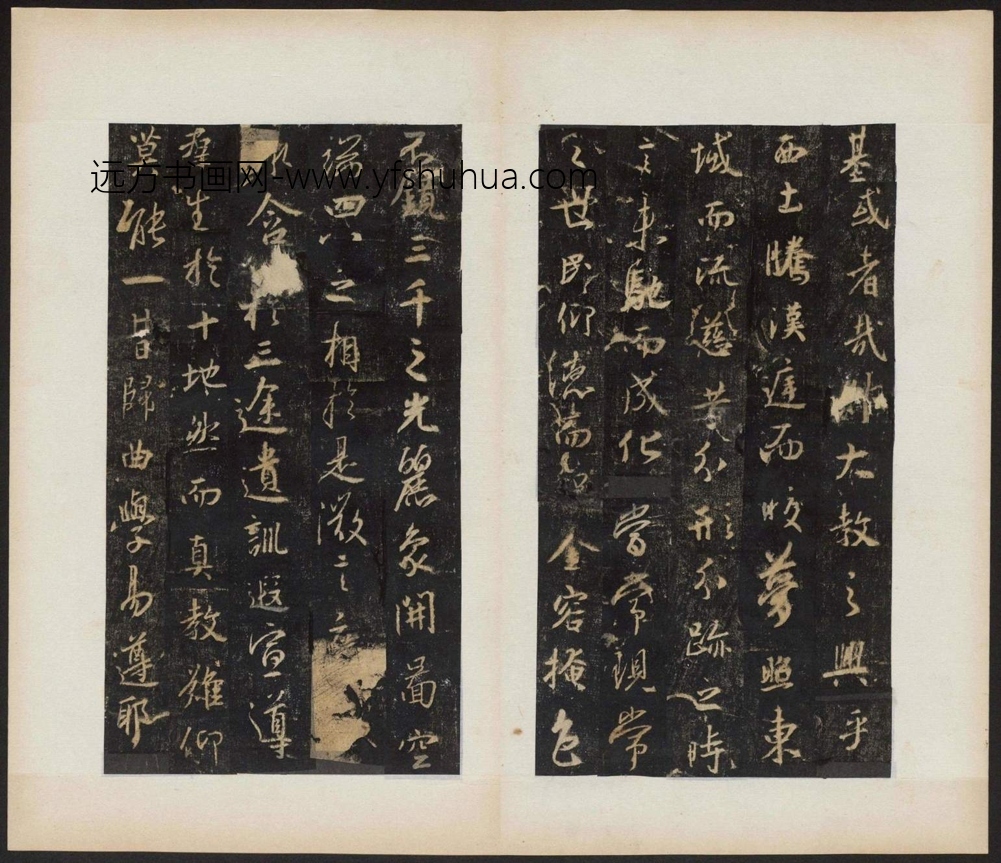 基或者哉大教之興乎
西土騰漢庭而皎夢照東
域而流慈昔分形分跡之時
言未馳而成化當常現常
之世民仰德而知金容掩色
不鏡三千之光麗象開圖空
端四八之相於是微言
含於三途遺訓遐宣導
群生於十地然而真教難仰
莫能一旨歸曲學易遵耶
远方书画网-www.yfshuhua.com